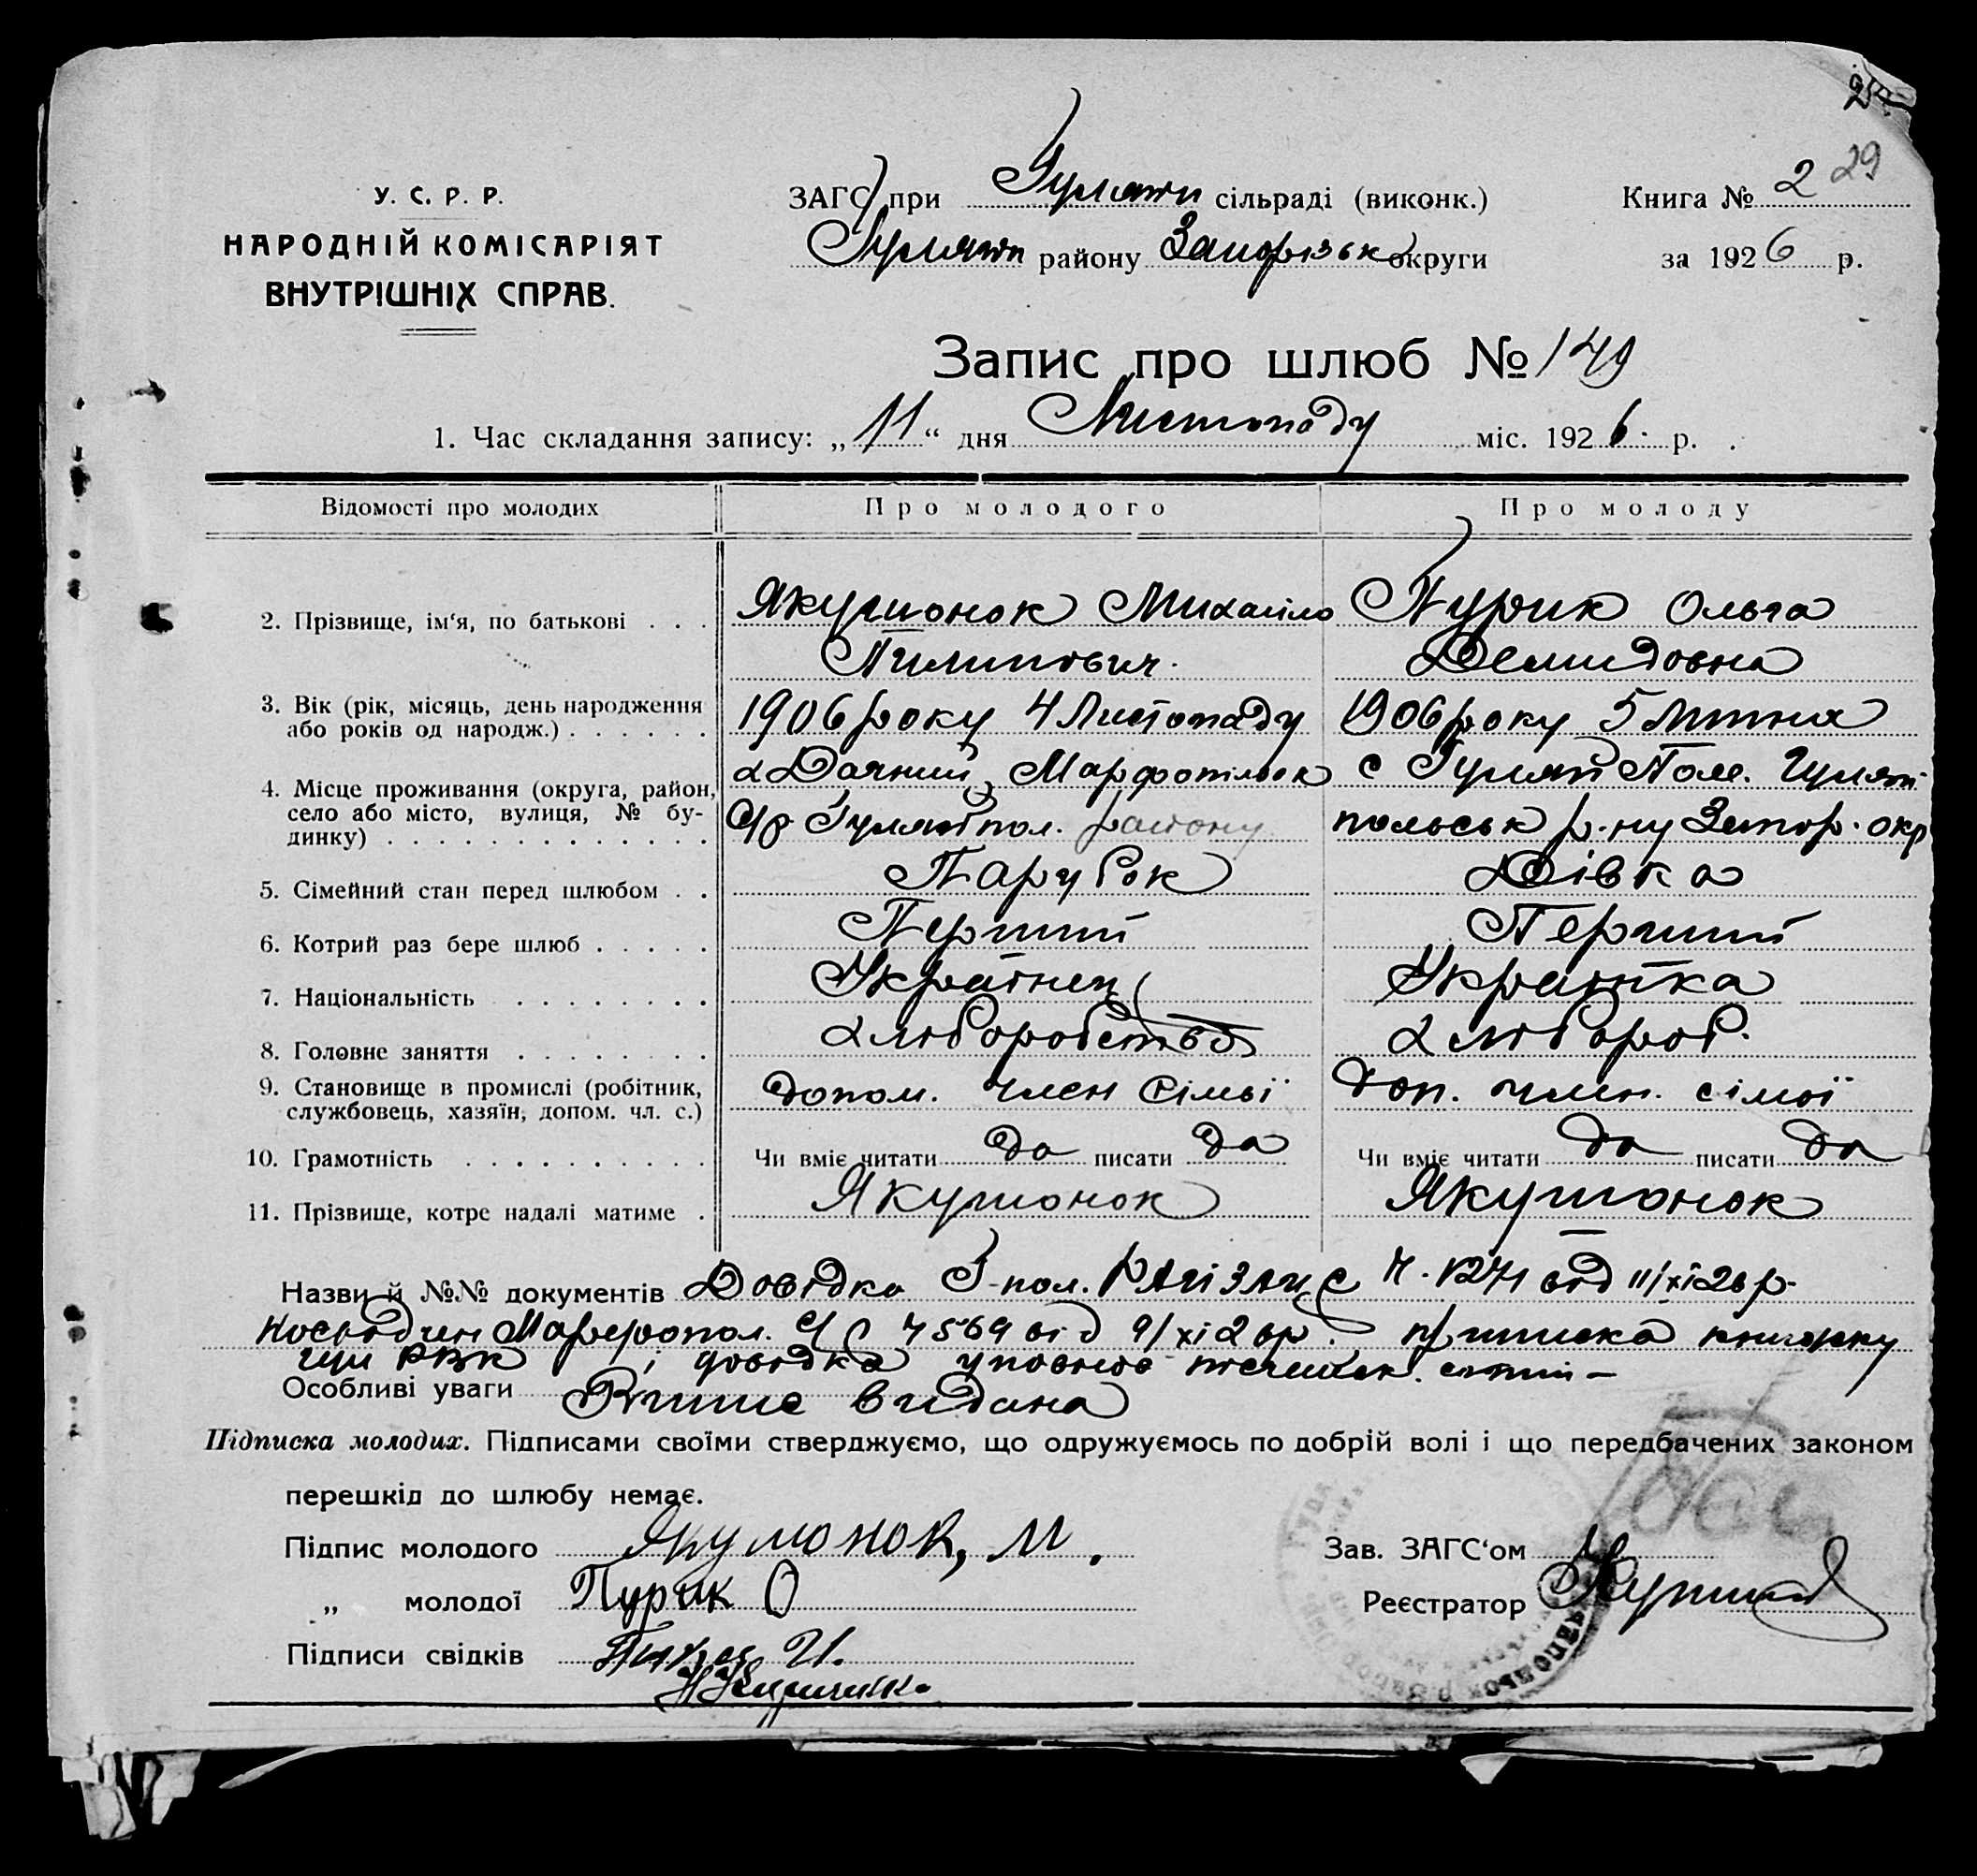 29
У. С. Р. Р.
НАРОДНІЙ КОМІСАРІЯТ
ВНУТРІШНІХ СПРАВ.
ЗАГС при Гуляйп сільраді (виконк.)
Гуляйп району Запорізьк округи
Книга № 2
за 1926 р.
Запис про шлюб № 149
1. Час складання запису: „11“ дня Листопаду міс. 1926 р.
Відомості про молодих Про молодого Про молоду
2. Прізвище, ім‘я, по батькові Якушонок Михайло Пурик Ольга
Пилипович Демидовна
3. Вік (рік, місяць, день народження
або років од народж.) 1906 року 4 Листопаду 1906 року 5 Липня
4. Місце проживання (округа, район,
село або місто, вулиця, № бу-
динку)
х Дачний, Марфопільськ
с/р Гуляйпол. району
с Гуляй Поле. Гуляй-
польськ р-ну Запор. окр
5. Сімейний стан перед шлюбом Парубок Дівка
6. Котрий раз бере шлюб Перший Перший
7. Національність Українец Українка
8. Головне заняття хлюборобство хлюбороб.
9. Становище в промислі (робітник,
службовець, хазяїн, допом. чл. с.) допом. член сімьї доп. член. сімьї
10. Грамотність Чи вміє читати да писати да Чи вміє читати да писати да
11. Прізвище, котре надалі матиме Якушонок Якушонок
Назви й №№ документів Довідка Г-пол. від 11/хі 26 р.
Марфопол. С/Р 7569 від 9/хі 26р. приписка книжку
РВК і довідка
Особливі уваги видана
Підписка молодих. Підписами своїми стверджуємо, що одружуємось по добрій волі і що передбачених законом
перешкід до шлюбу немає.
Підпис молодого Якушонок, М.
„ молодої Пурик О
Підписи свідків
Зав. ЗАГС‘ом
Реєстратор